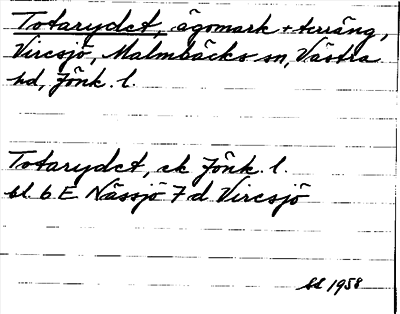 Totarydet, ägomark + terräng,
Vircsjö, Malmbäcks sn, Västra
hd, Jönk. l.
Totarydet, ek Jönk. l.
bl. 6 E Nässjö 7 d Vircsjö
bd 1958